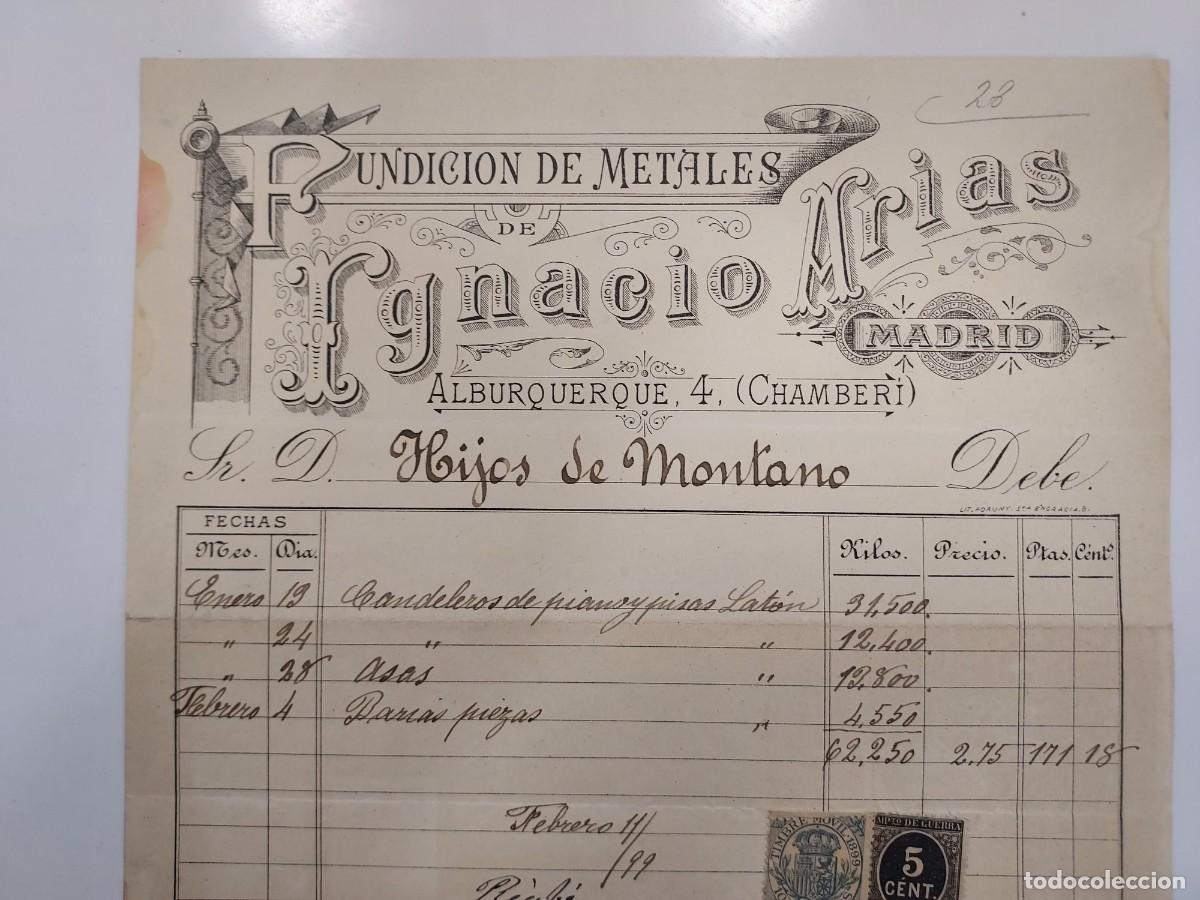 28
FUNDICION DE METALES
DE
Ygnacio Arias
MADRID
ALBURQUERQUE, 4, (CHAMBERÍ)
Sr. D. Hijos de Montano Debe.
LIT. FORUNY. STA ENGRACIA. 8.
FECHAS
Mes. Dia. Kilos. Precio. Ptas. Cénts.
Enero 13 Candeleros de piano y pisas Latón 31,500.
" 24 " " 12,400.
" 28 Asas " 13,800.
Febrero 4 Barias piezas " 4,550
62,250 2,75 171 18
Febrero 11/
/99
Recibí
TIMBRE MOVIL-1899
10 S
MPTO DE GUERRA
5
CÉNT.
todocoleccion